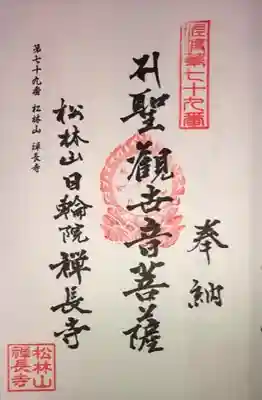 佐渡第七十九番
奉納
聖觀世音菩薩
松林山日輪院禪長寺
第七十九番 松林山 禪長寺
松林山
禅長寺